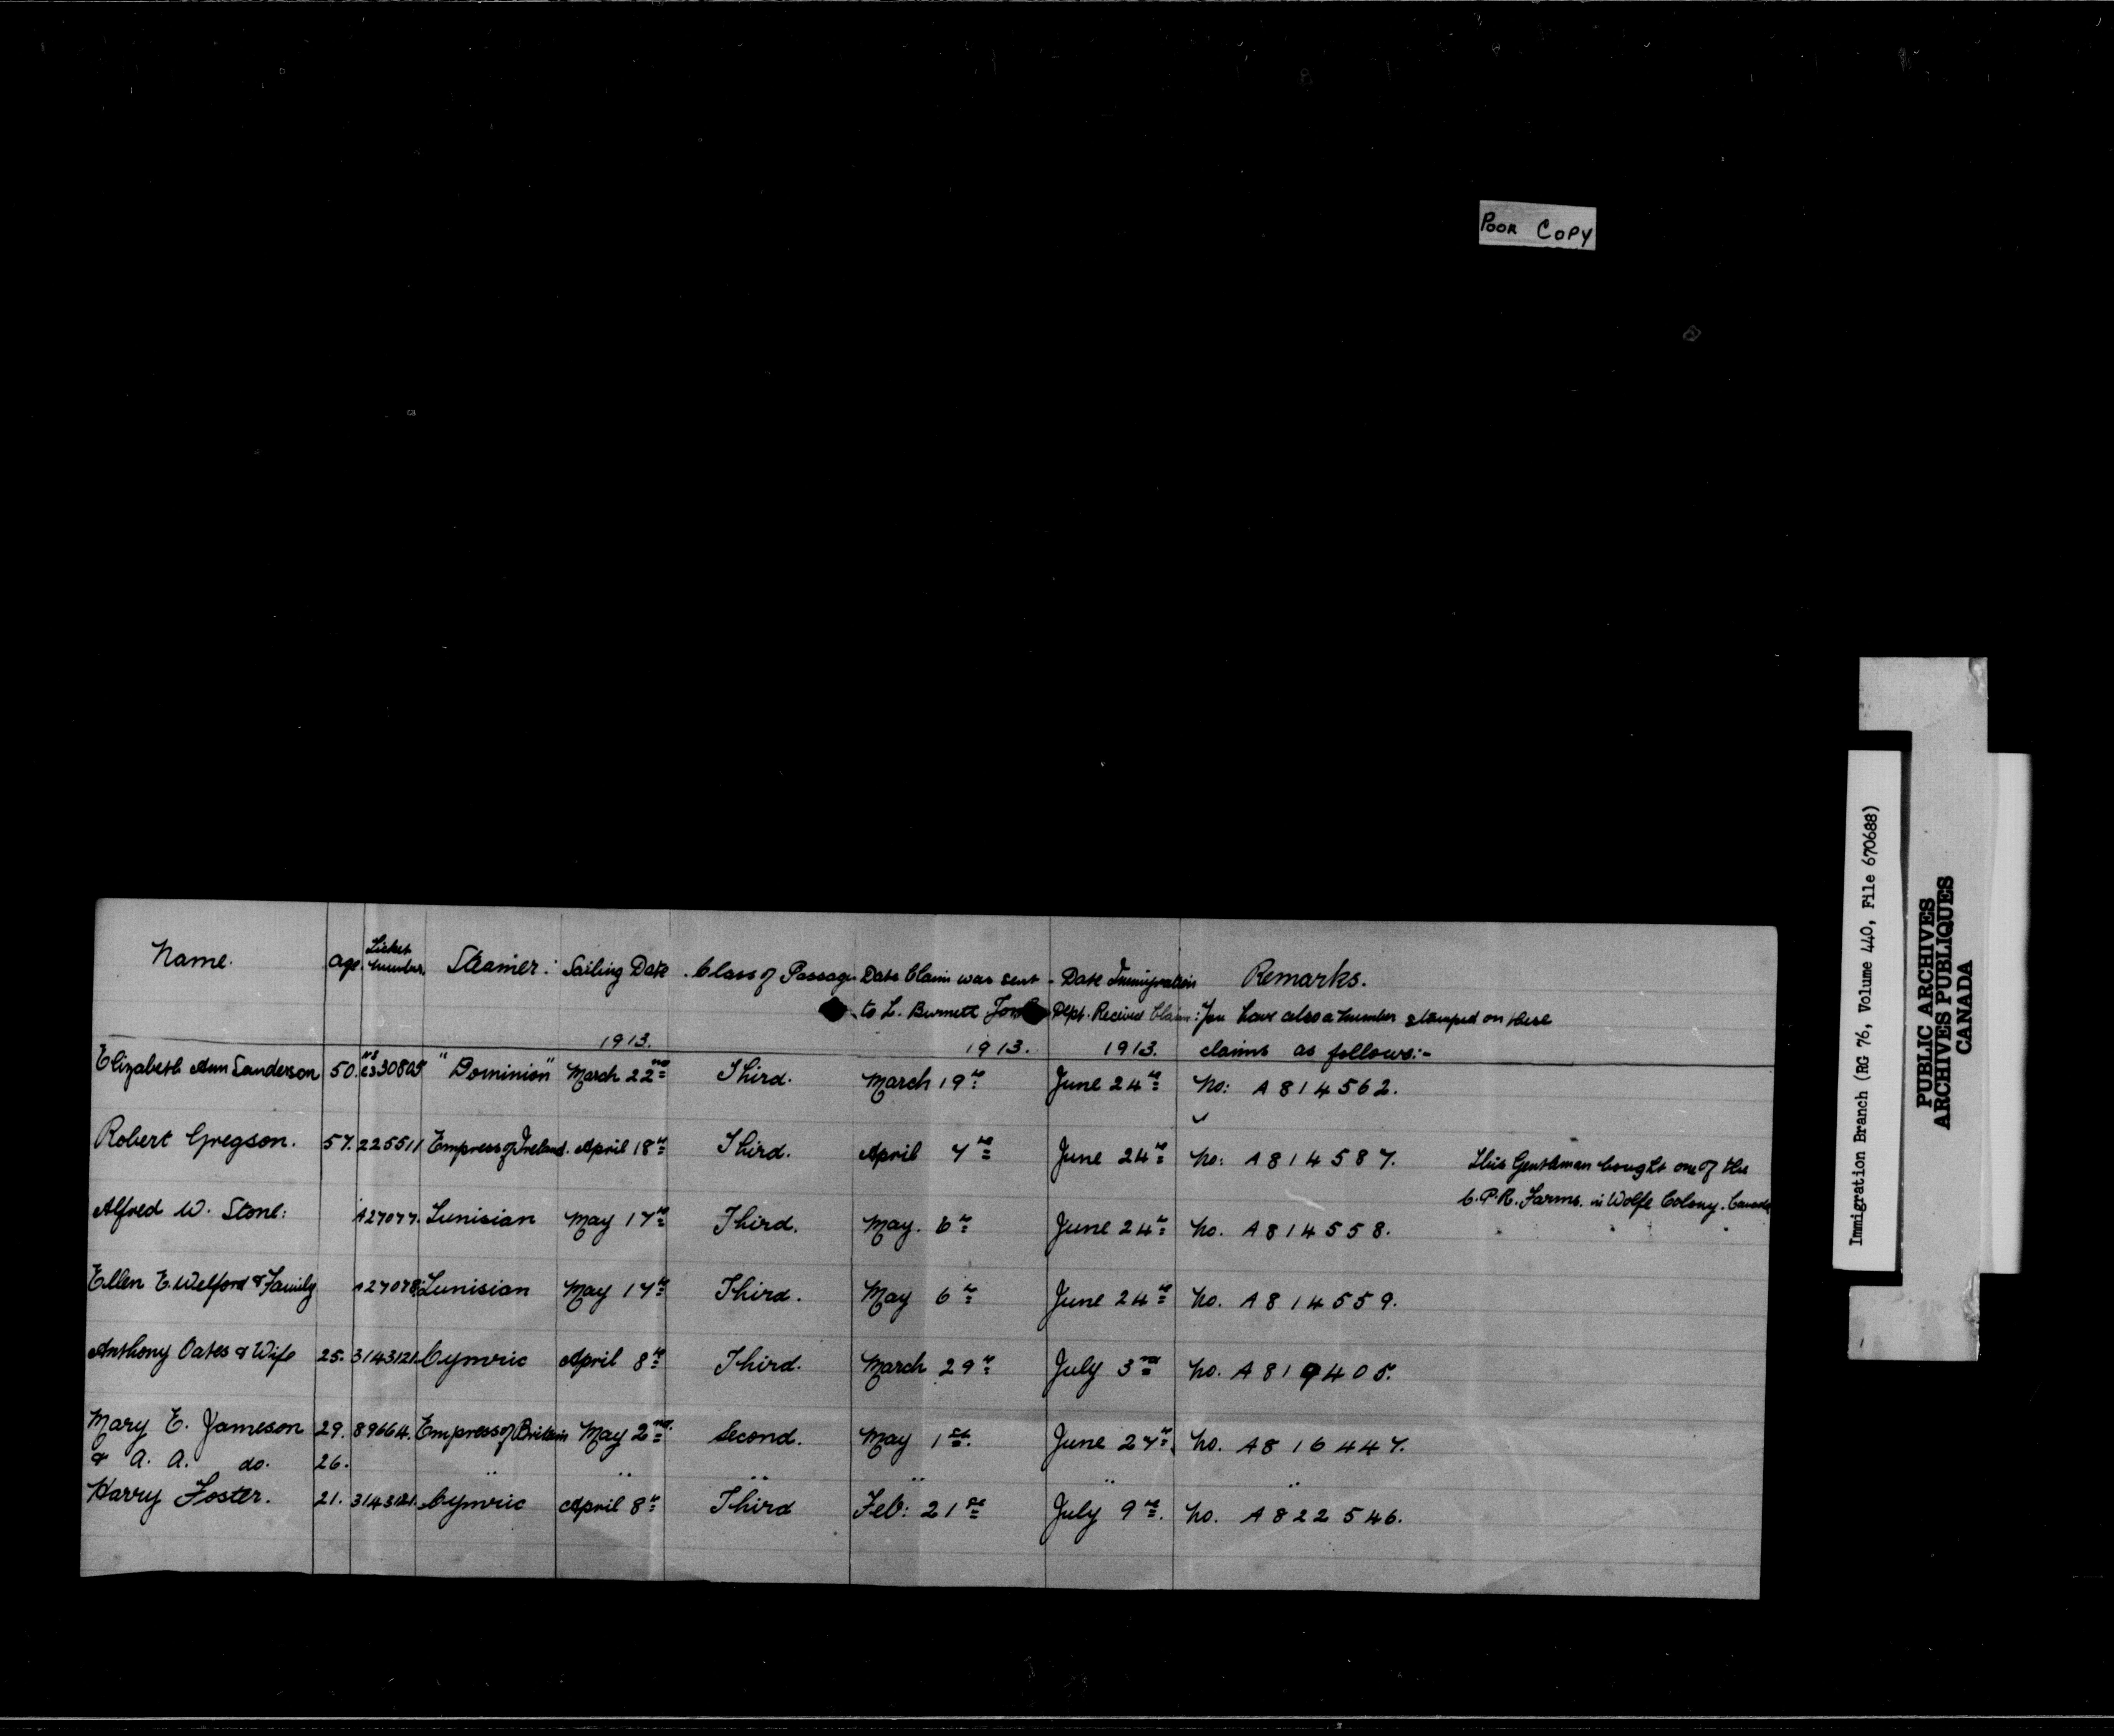 POOR COPY
Name. Age. Ticket Number. Steamer. Sailing Date. Class of Passage. Date Claim was sent - Date Immigration Remarks.
to L. Burnett Dept. Received Claim: You have also a number stamped on these
1913. 1913. 1913. claims as follows:-
Elizabeth Ann Sanderson 50. "Dominion" March 22nd Third. March 19th June 24th No: A814562.
Robert Gregson. 57. 225511 Empress of Ireland. April 18th Third. April 7th June 24th No: A814587. This Gentleman bought one of the
C.P.R. Farms. in Wolfe Colony. Canada
Alfred W. Stone: A27077. Tunisian May 17th Third. May. 6th June 24th No. A814558.
Ellen E. Welford & Family A27078 Tunisian May 17th Third. May 6th June 24th No. A814559.
Anthony Oates & Wife 25. 3143121 Cymric April 8th Third. March 29th July 3rd No. A819405.
Mary E. Jameson 29. 89664. Empress of Britain May 2nd. Second. May 1st. June 27th. No. A816447.
& A. A. do. 26. " " " " " "
Harry Foster. 21. 3143121. Cymric April 8th Third Feb: 21st July 9th. No. A822546.
Immigration Branch (RG 76, Volume 440, File 670688)
PUBLIC ARCHIVES
ARCHIVES PUBLIQUES
CANADA